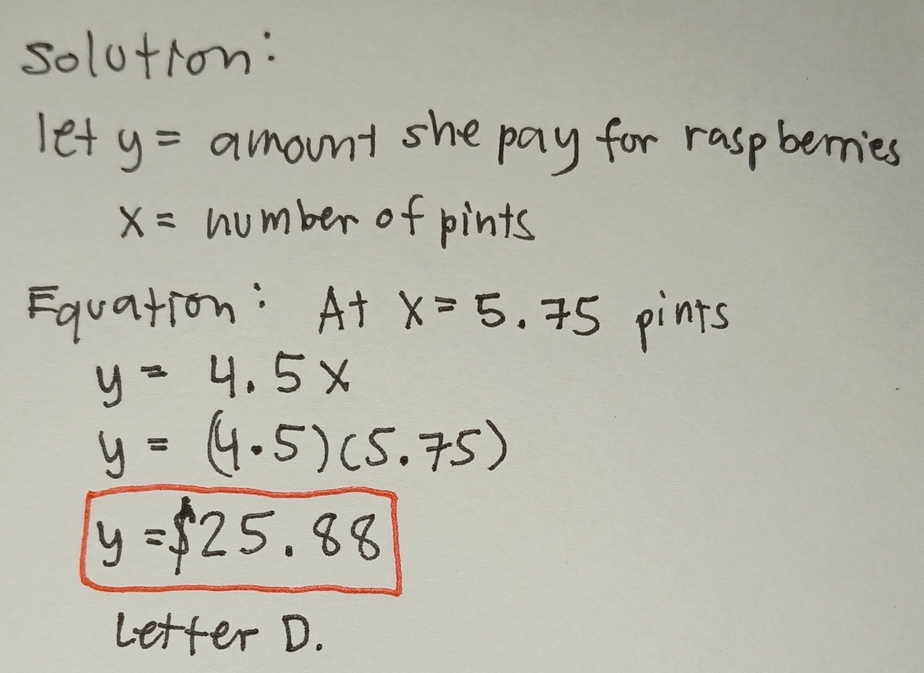 Solution:
let y = amount she pay for raspberries
x = number of pints
Equation: At x = 5.75 pints
y = 4.5x
y = (4.5)(5.75)
y = $25.88
Letter D.